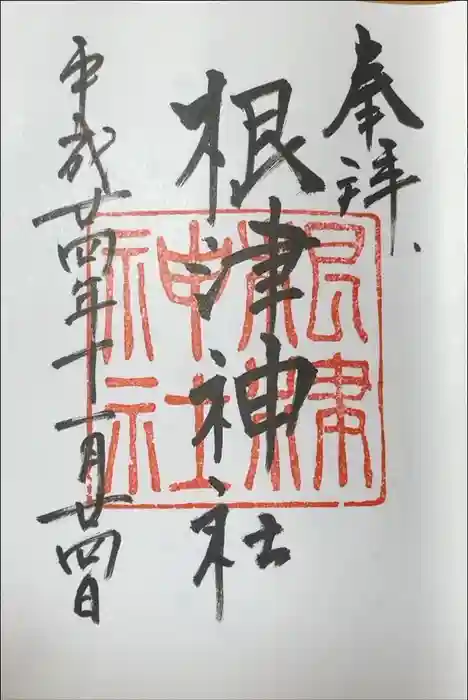 奉拝
根津神社
根津神社
平成廿四年十一月廿四日